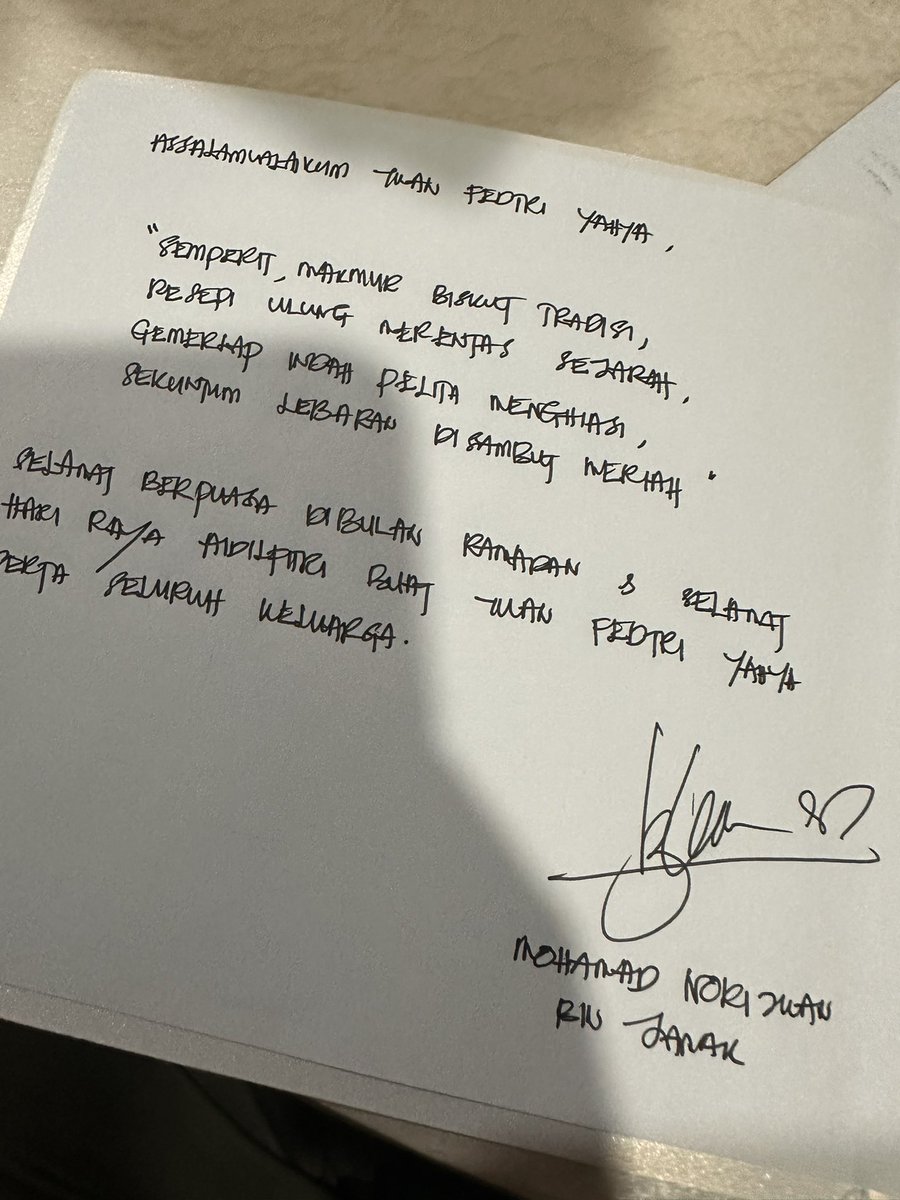 ASSALAMUALAIKUM TUAN FEDTRI YAHYA,
"SEMPERIT, MAKMUR BISKUT TRADISI,
RESEPI ULUNG MERENTAS SEJARAH,
GEMERLAP INDAH PELITA MENGHIASI,
SEKUNTUM LEBARAN DISAMBUT MERIAH"
SELAMAT BERPUASA DIBULAN RAMADAN & SELAMAT
HARI RAYA AIDILFITRI BUAT TUAN FEDTRI YAHYA
SERTA SELURUH KELUARGA.
MOHAMAD NORIZWAN
BIN